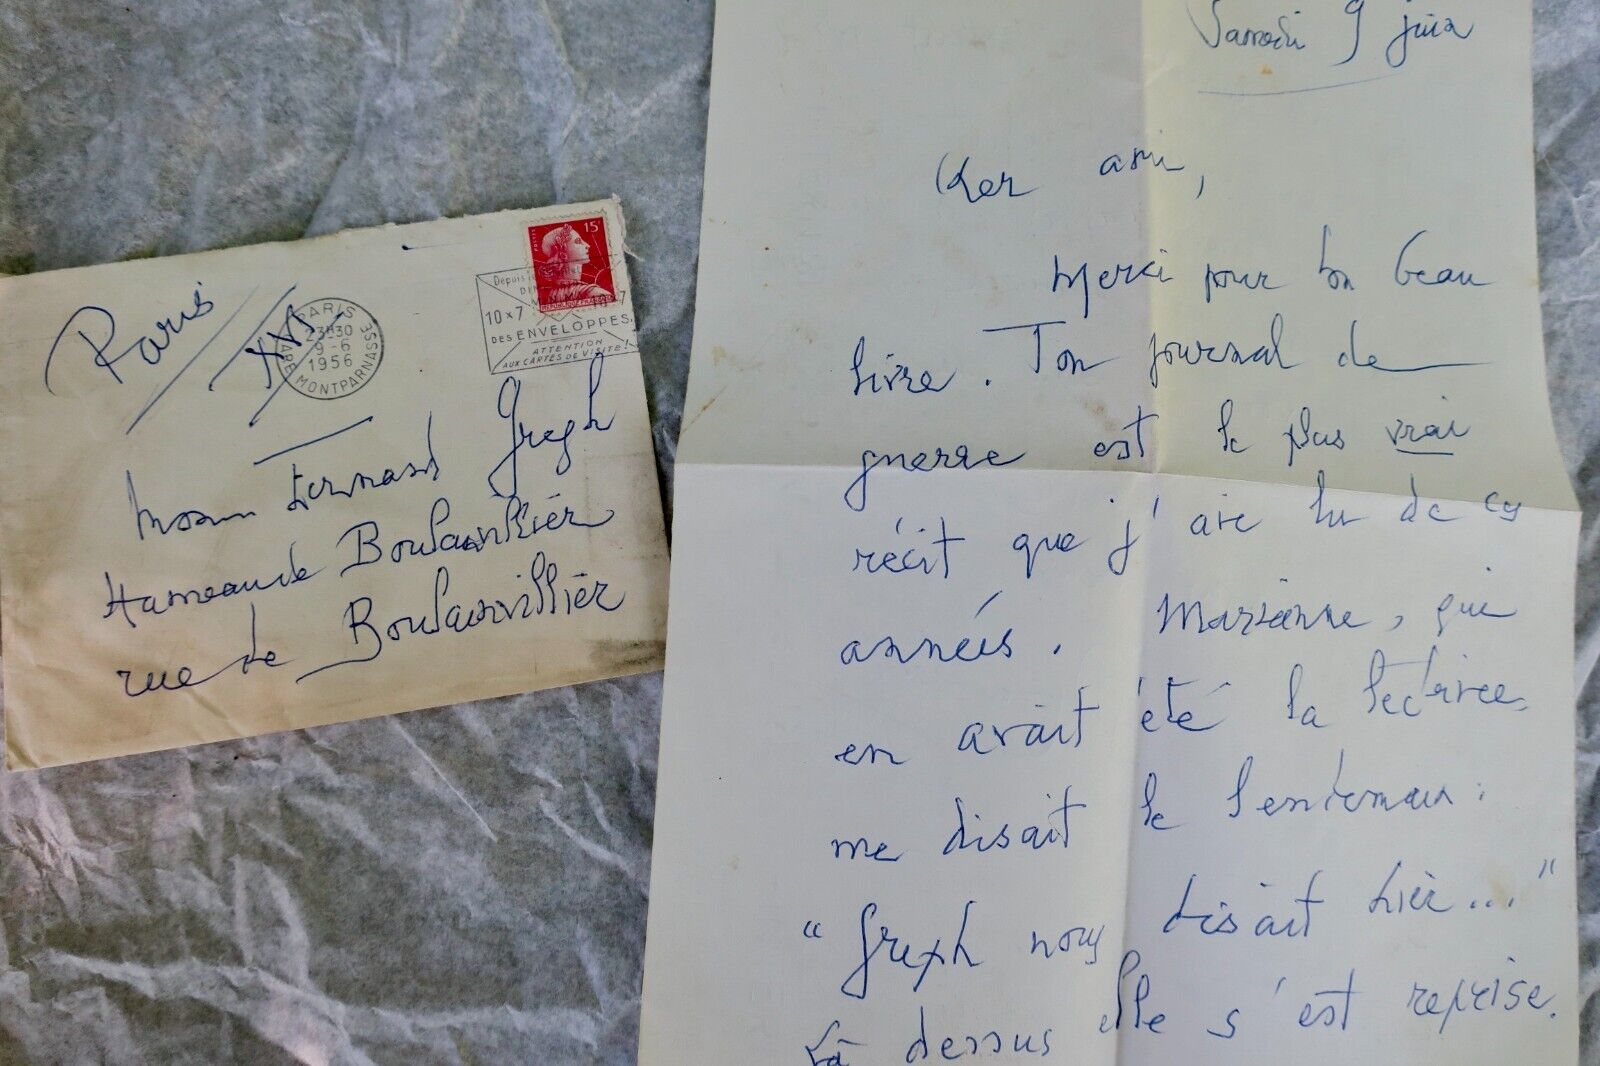 Paris
XVI
PARIS
23H30
9-6
1956
GARE MONTPARNASSE
15F
POSTES
REPUBLIQUE FRANCAISE
Depuis
10 x 7
DES ENVELOPPES
ATTENTION
AUX CARTES DE VISITE!
Fernand Gregh
Hameau de Boulainvillier
rue de Boulainvillier
Samedi 9 juin
Cher ami,
Merci pour ton beau
livre. Ton journal de
guerre est le plus vrai
récit que j'aie lu de ces
années. Marianne, qui
en avait été la lectrice,
me disait le lendemain :
"Gregh nous disait hier..."
Là dessus elle s'est reprise.